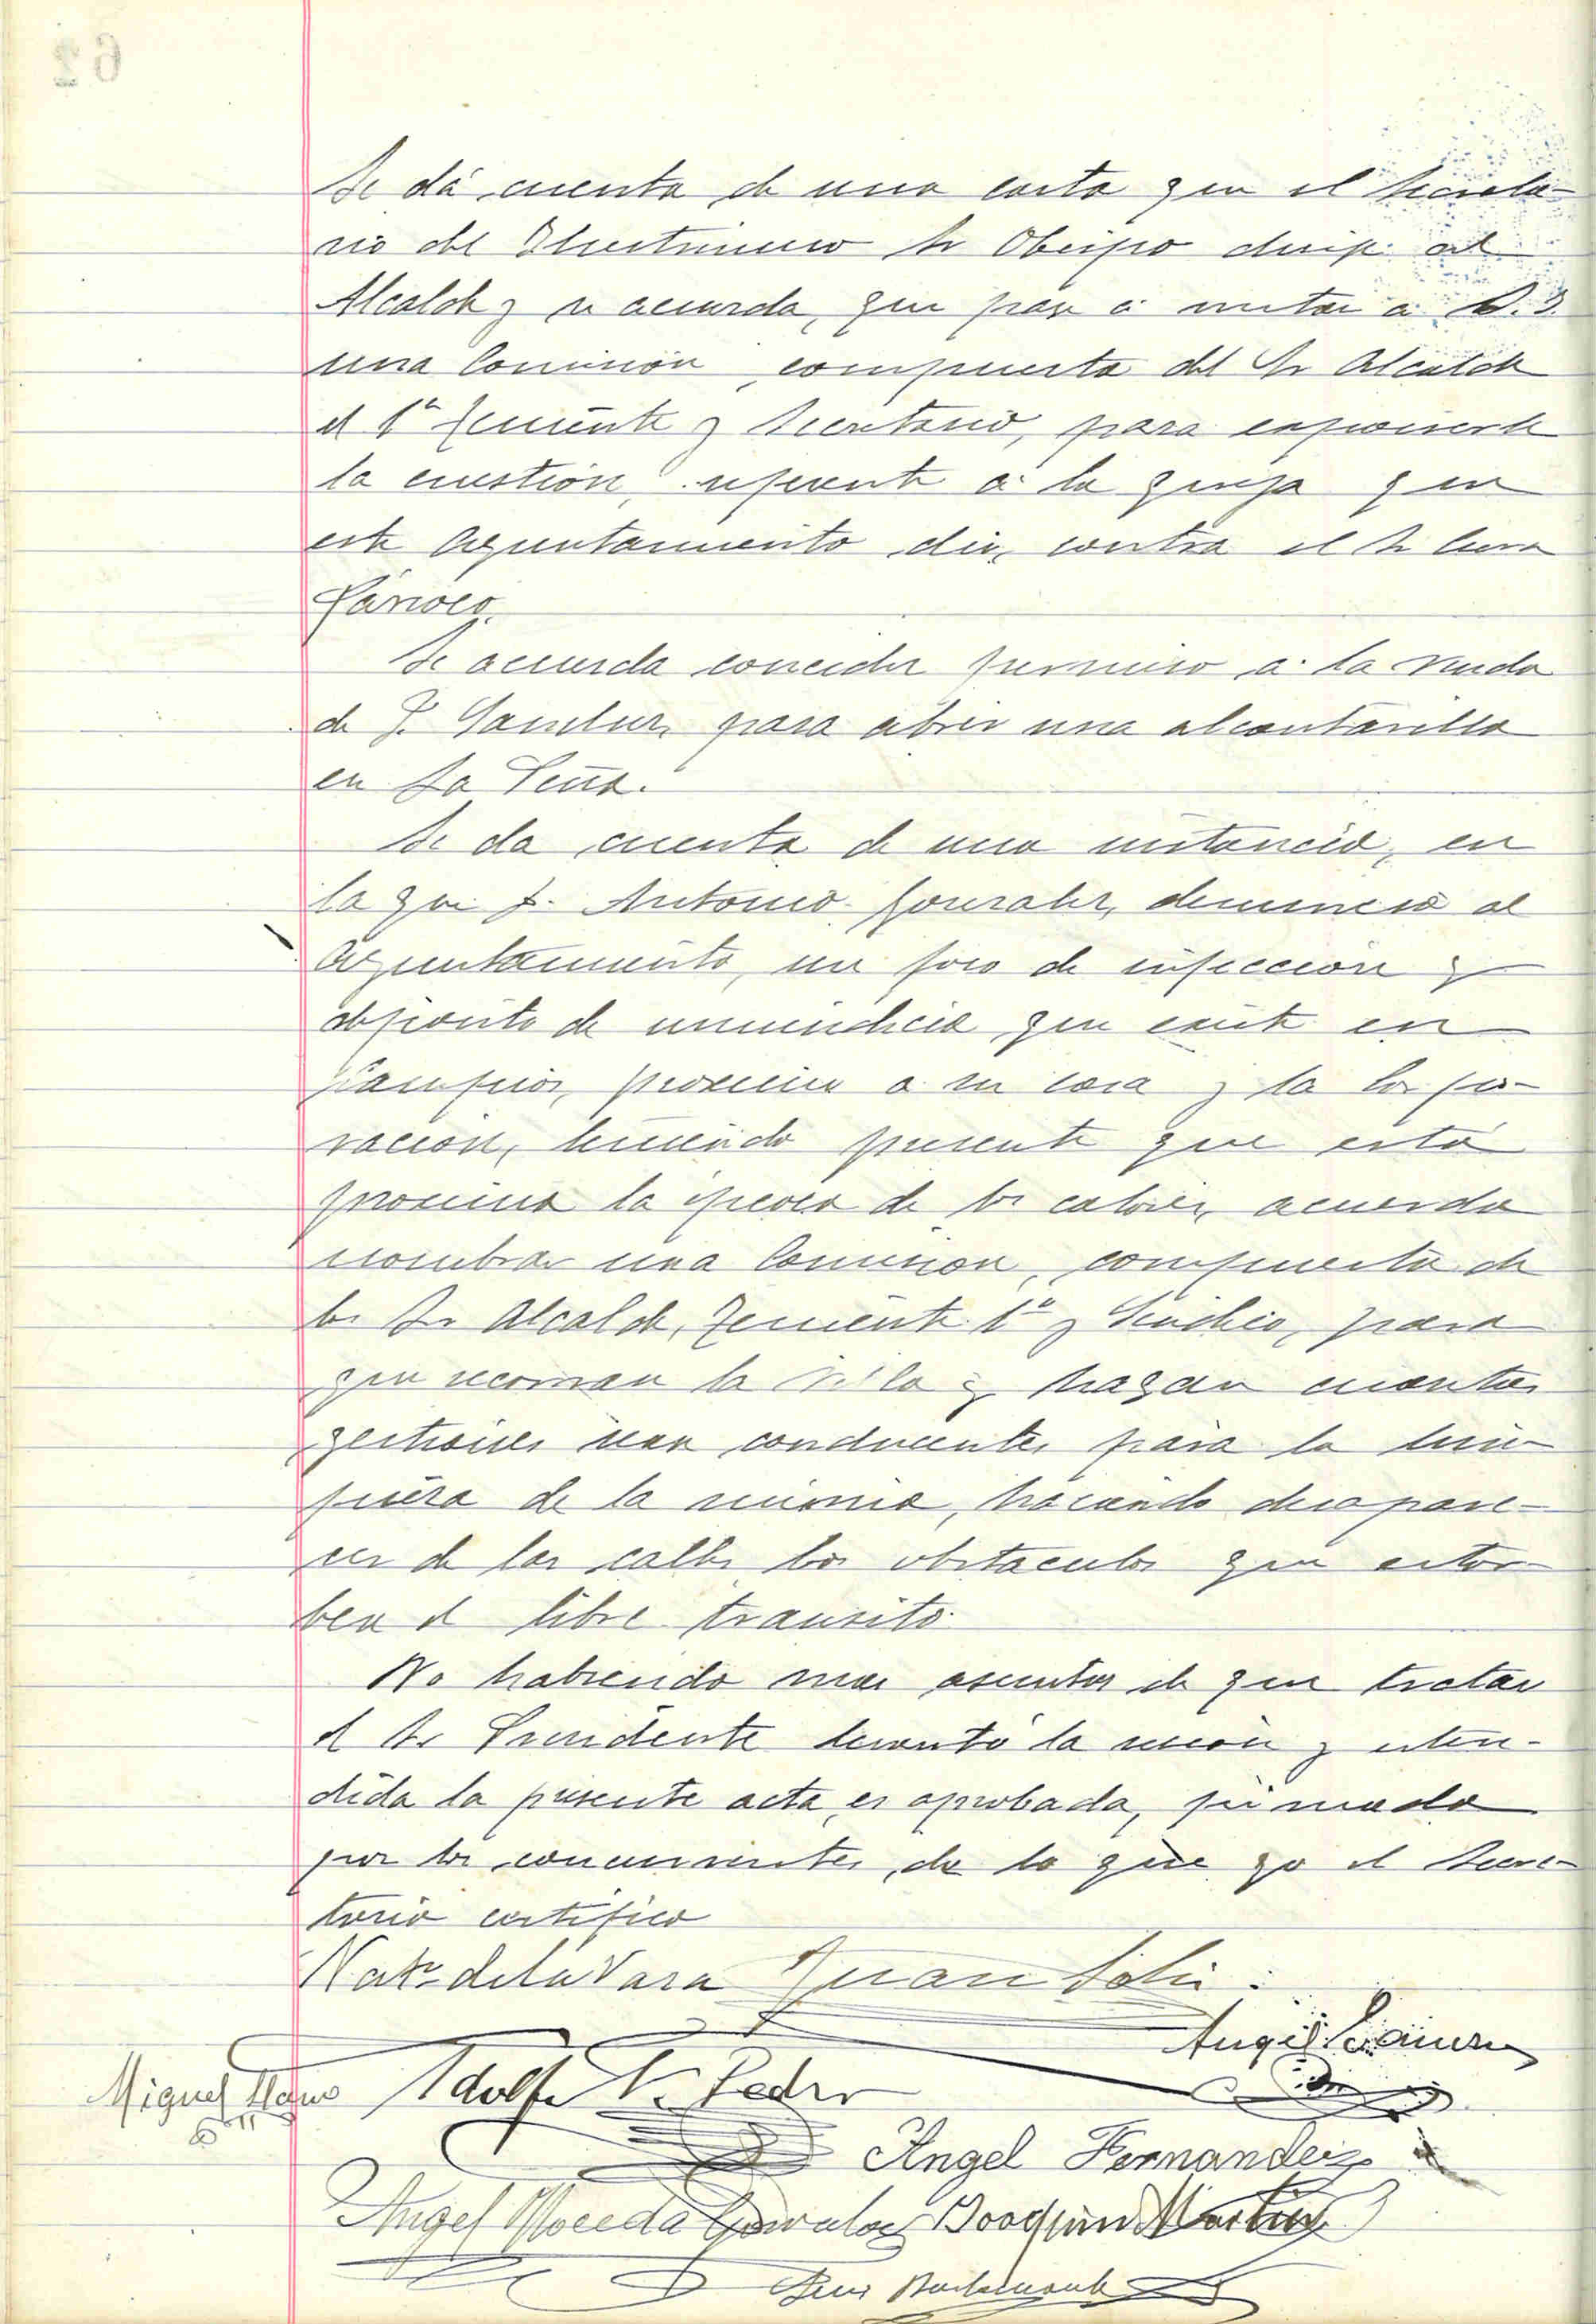 Se dá cuenta de una carta que el Secreta-
rio del Ilustrisimo Sr Obispo dirije al
Alcalde y se acuerda, que pase á visitar a S. I.
una Comision compuesta del Sr Alcalde
el 1º Teniente y Secretario, para exponerle
la cuestión, referente á la queja que
este Ayuntamiento dio, contra el Sr Cura
Párroco.
Se acuerda conceder permiso a la viuda
de J. para abrir una alcantarilla
en La Peña.
Se da cuenta de una instancia, en
la que D. Antonio Gonzalez, denuncia al
Ayuntamiento, un foco de infeccion y
deposito de inmundicia que existe en
proximo a su casa y la Corpo-
racion, teniendo presente que está
proxima la época de los calores, acuerda
nombrar una Comision, compuesta de
los Sr Alcalde, Teniente 1º y Sindico, para
que recorran la Villa y hagan cuantas
gestiones sean conducentes para la lim-
pieza de la misma, haciendo desapare-
cer de las calles los obstaculos que estor-
ben el libre transito.
No habiendo mas asuntos de que tratar
el Sr Presidente levantó la sesión y esten-
dida la presente acta, es aprobada, firmada
por los concurrentes, de lo que yo el Secre-
tario certifico
de la Vara Juan
Angel
Miguel Llano Adolfo V. Pedro
Angel Fernandez
Angel Noceda Gonzalez Joaquin Martinez
Bustamante
62